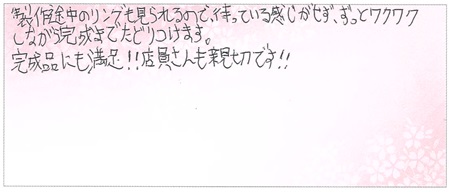 製作途中のリングも見られるので、待っている感じがせず、ずっとワクワク
しながら完成までたどりつけます。
完成品にも満足!!店員さんも親切です!!